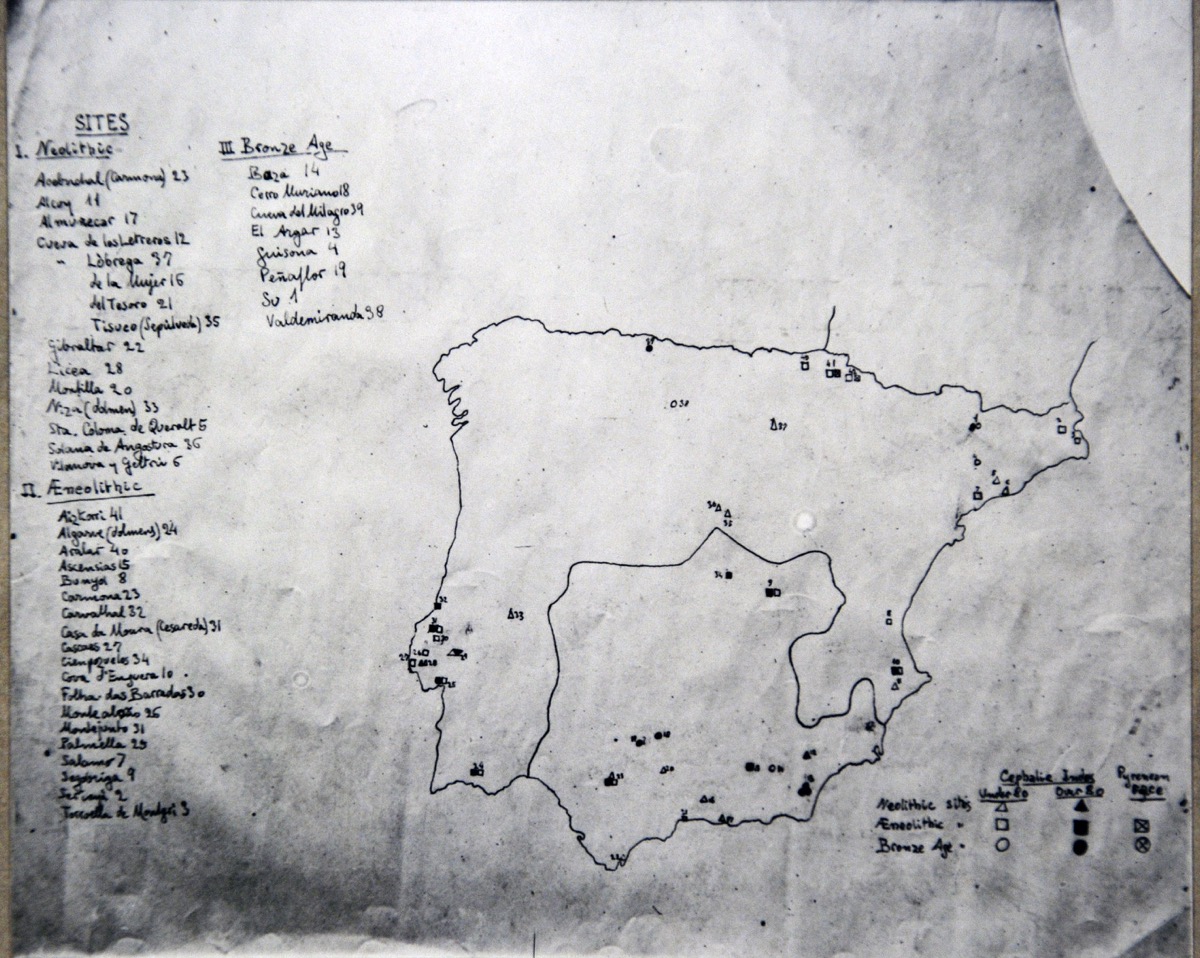 SITES
I. Neolithic
Acebuchal (Carmona) 23
Alcoy 11
Almuñecar 17
Cueva de los Letreros 12
" Lòbrega 37
de la Mujer 16
del Tesoro 21
Tisuco (Sepúlveda) 35
Gibraltar 22
Licea 28
Montilla 20
Niza (dolmen) 33
Sta. Coloma de Queralt 5
Solana de Angostura 36
Vilanova y Geltrú 6
II. Æneolithic
Aizkorri 41
Algarve (dolmens) 24
Aralar 40
Ascensias 15
Bunyol 8
Carmona 23
Carvalhal 32
Casa da Moura (Cesareda) 31
Cascaes 27
Cienpozuelos 34
Cova d'Enguera 10
Folha das Barradas 30
Monte abrão 26
Montejunto 31
Palmella 25
Salamo 7
Segóbriga 9
Serinyà 2
Torroella de Montgrí 3
III Bronze Age
Baza 14
Cerro Muriano 18
Cueva del Milagro 39
El Argar 13
Guisona 4
Peñaflor 19
Su 1
Valdemiranda 38
38
37
36
35
34
9
32
33
31
30
8
10
25
24
20
22
Cephalic Index
Under 80 Over 80
Pyrenean
race
Neolithic sites
Æneolithic "
Bronze Age "